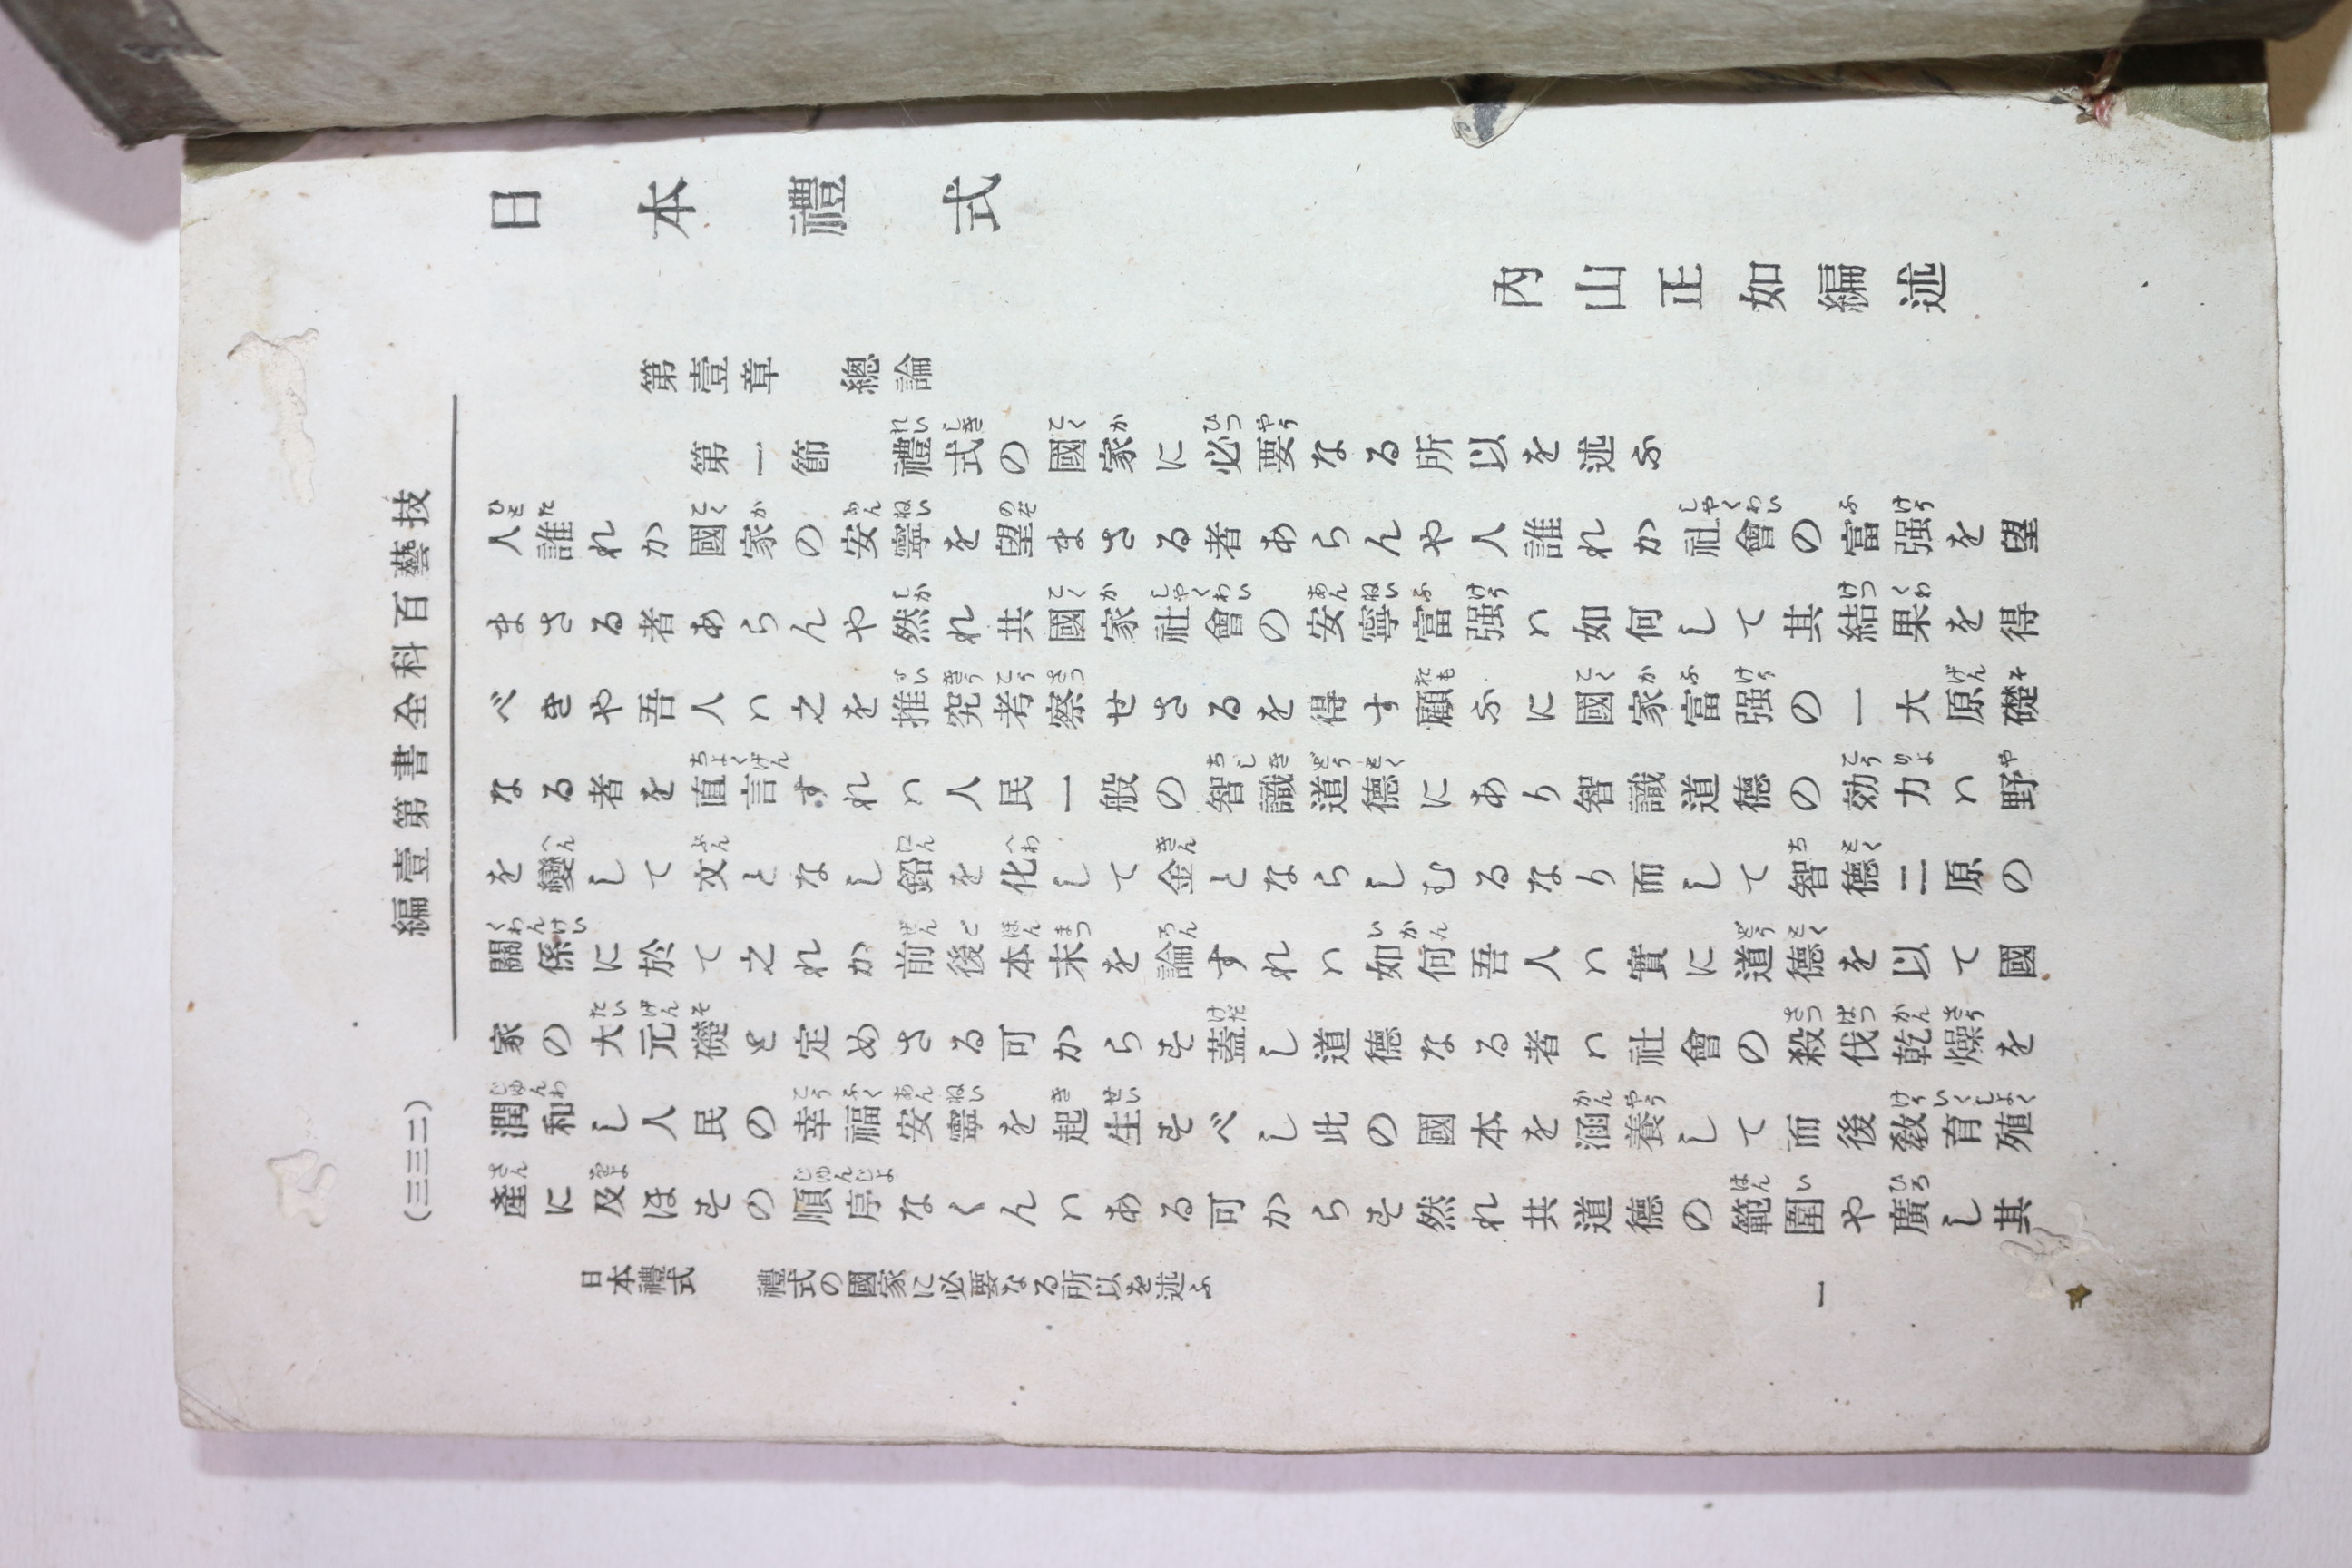 技藝百科全書第壹編
(二三三)
日本禮式
內山正如編述
第壹章 總論
第一節 禮式の國家に必要なる所以を述ふ
人誰れか國家の安寧を望まさる者あらんや人誰れか社會の富强を望
まさる者あらんや然れ共國家社會の安寧富强ハ如何して其結果を得
べきや吾人ハ之を推究考察せさるを得す顧ふに國家富强の一大原礎
なる者を直言すれハ人民一般の智識道德にあり智識道德の効力ハ野
を變して文となし鉛を化して金とならしむるなり而して智德二原の
關係に於て之れか前後本末を論すれハ如何吾人ハ實に道德を以て國
家の大元礎と定めさる可からす蓋し道德なる者ハ社會の殺伐乾燥を
潤和し人民の幸福安寧を起生すべし此の國本を涵養して而後敎育殖
產に及ほすの順序なくんハある可からす然れ共道德の範圍や廣し其
日本禮式 禮式の國家に必要なる所以を述ふ
一